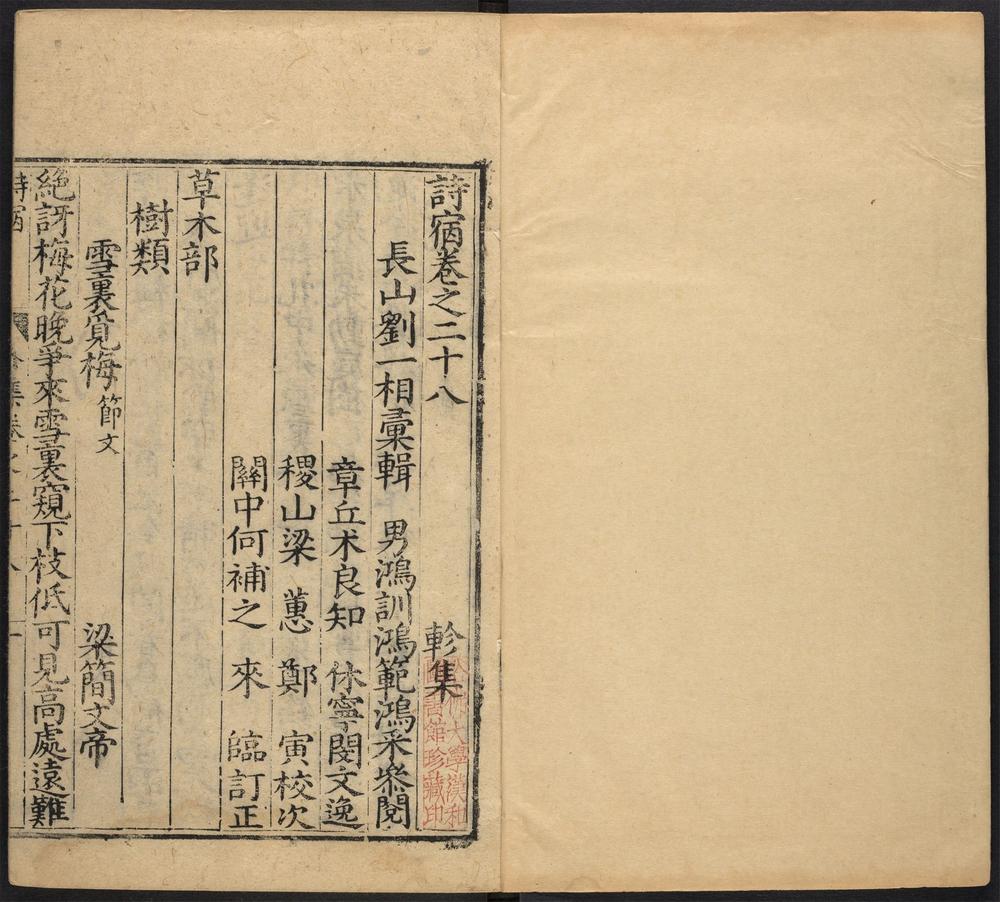 詩宿卷之二十八 軫集
哈佛大學漢和
圖書館珍藏印
長山劉一相彙輯 男鴻訓鴻範鴻采叅閱
章丘术良知 休寧閔文逸
稷山梁 蕙 鄭 寅校次
關中何補之 來 臨訂正
草木部
樹類
雪裏覓梅 節文 梁簡文帝
絕訝梅花晚爭來雪裏窺下枝低可見高處遠難
詩宿 軫集卷之二十八 一